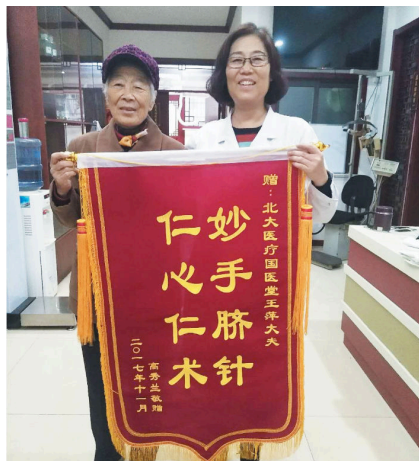 赠：北大医疗国医堂王萍大夫
妙手脐针
仁心仁术
高秀兰敬赠
二〇一七年十一月